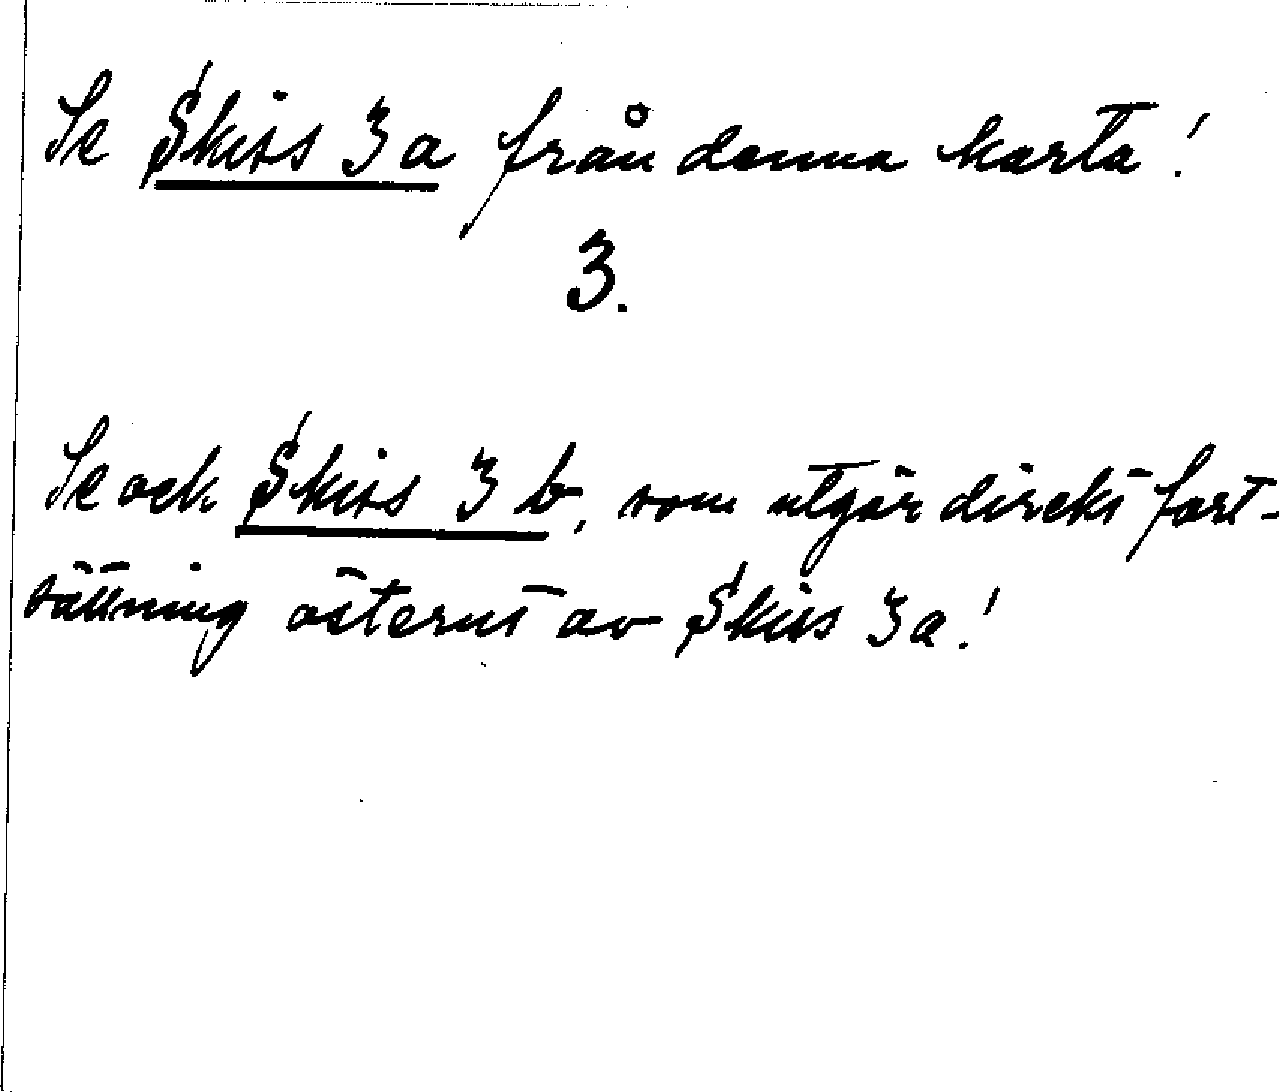 Se Skiss 3a från denna karta!
3.
Se ock Skiss 3 b, som utgör direkt fort-
sättning österut av Skiss 3a!